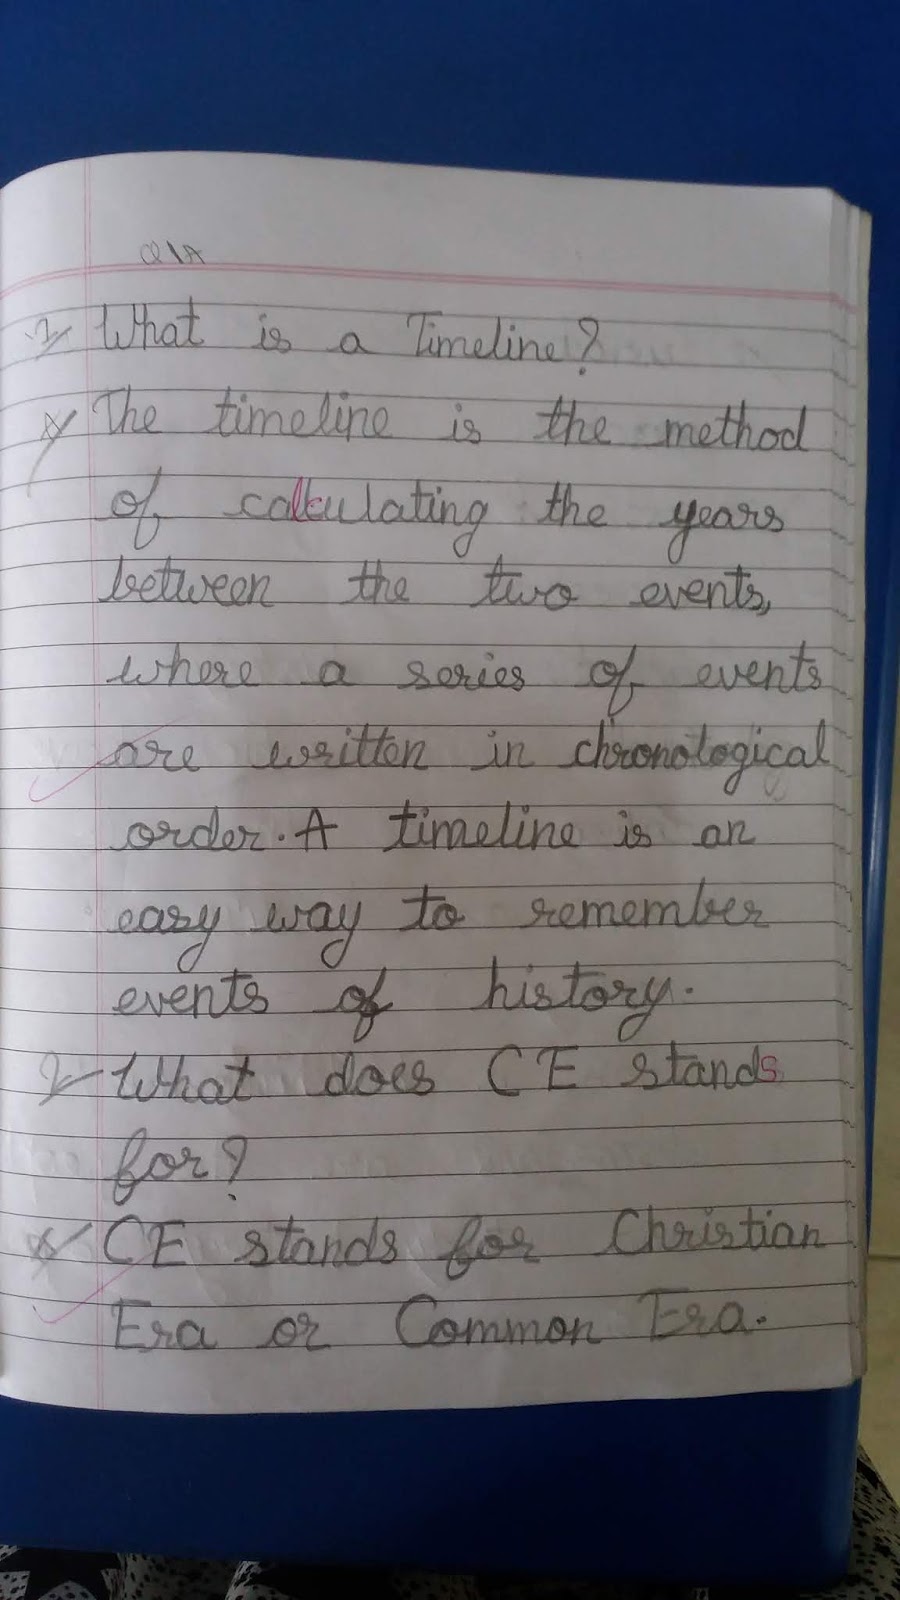 Q\A
1/ What is a Timeline?
A/ The timeline is the method
of calculating the years
between the two events,
where a series of events
are written in chronological
order. A timeline is an
easy way to remember
events of history.
2- What does CE stands
for?
A/ CE stands for Christian
Era or Common Era.